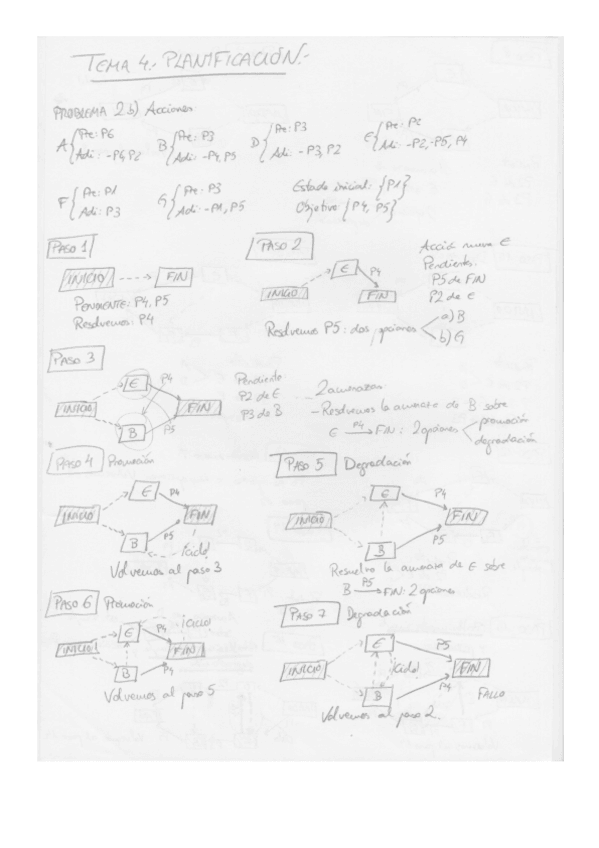 TEMA 4.- PLANIFICACIÓN.-
PROBLEMA 2b) Acciones
A { Pre: P6
Adi: -P4, P2
B { Pre: P3
Adi: -P4, P5
D { Pre: P3
Adi: -P3, P2
E { Pre: P2
Adi: -P2, -P5, P4
F { Pre: P1
Adi: P3
G { Pre: P3
Adi: -P1, P5
Estado inicial: {P1}
Objetivo {P4, P5}
PASO 1
INICIO FIN
PENDIENTE: P4, P5
Resolvemos: P4
PASO 2
E P4
INICIO FIN
Acción nueva E
Pendiente:
P5 de FIN
P2 de E
Resolvemos P5: dos opciones
a) B
b) G
PASO 3
E P4
INICIO FIN
B P5
Pendiente
P2 de E
P3 de B
2 amenazas
- Resolvemos la amenaza de B sobre
E P4 FIN: 2 opciones
promoción
degradación
PASO 4 Promoción
E P4
INICIO FIN
B P5
¡ciclo!
Volvemos al paso 3
PASO 5 Degradación
E P4
INICIO FIN
B P5
Resuelvo la amenaza de E sobre
B P5 FIN: 2 opciones
PASO 6 Promoción
¡Ciclo!
E P4
INICIO FIN
B P4
Volvemos al paso 5
PASO 7 Degradación
E P5
INICIO ¡Ciclo! FIN
B P4
FALLO
Volvemos al paso 2.